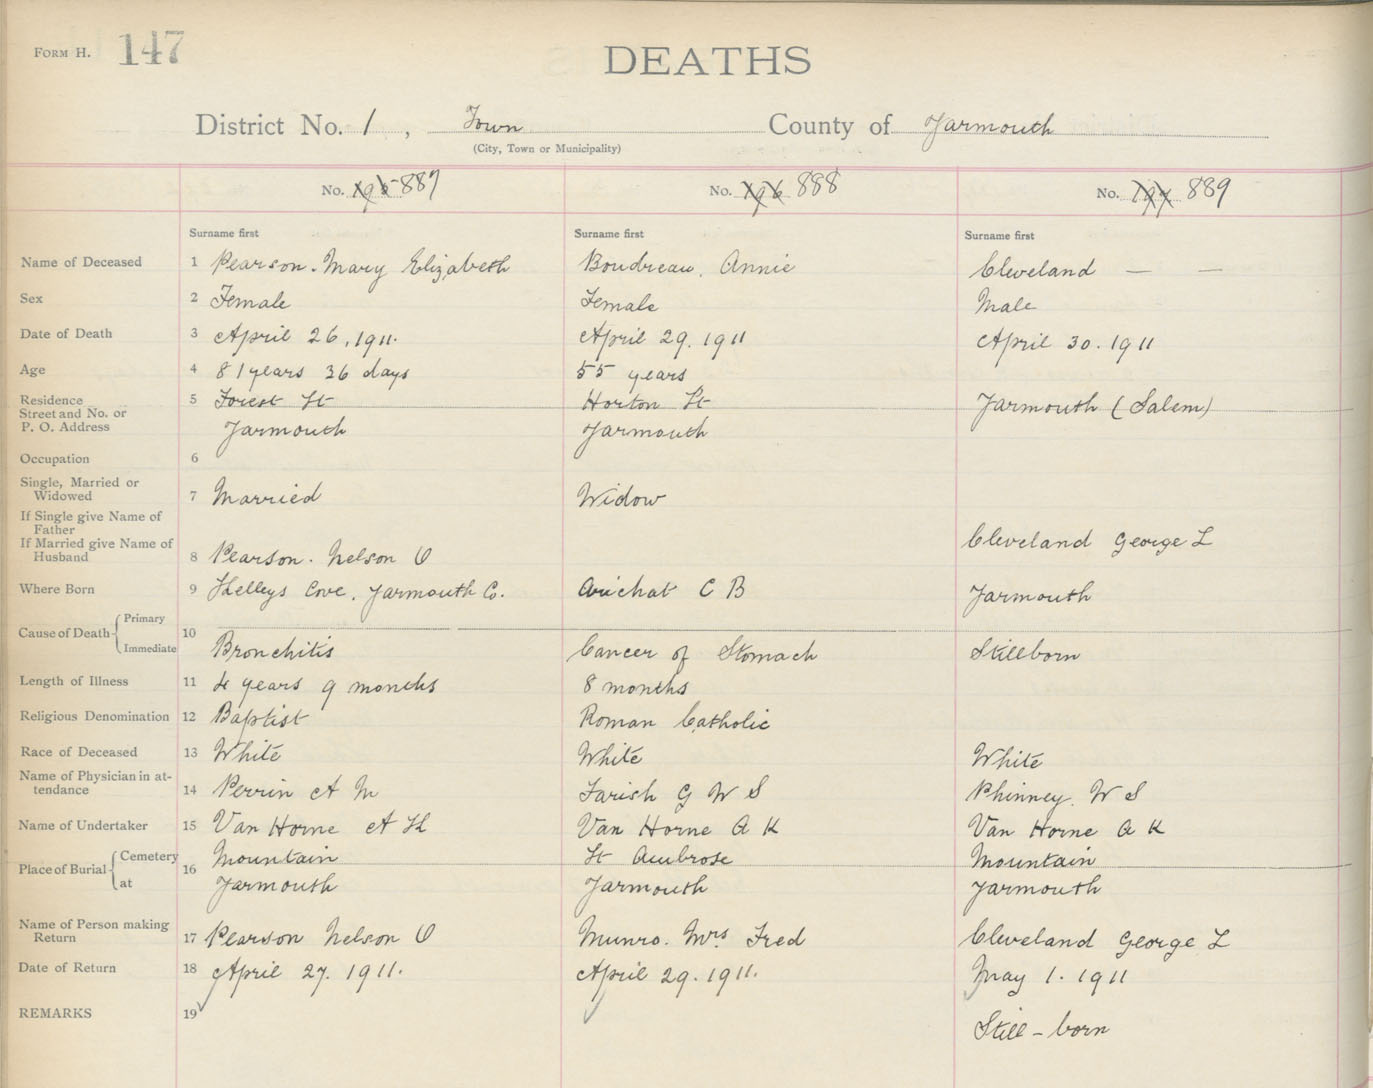 FORM H. 147
DEATHS
District No. 1, Town County of Yarmouth
(City, Town or Municipality)
No. 195 887 No. 196 888 No. 197 889
Surname first Surname first Surname first
Name of Deceased 1 Pearson. Mary Elizabeth Boudreau, Annie Cleveland — —
Sex 2 Female Female Male
Date of Death 3 April 26, 1911. April 29. 1911 April 30. 1911
Age 4 81 years 36 days 55 years
Residence 5 Forest St Horton St Yarmouth (Salem)
Street and No. or
P. O. Address Yarmouth Yarmouth
Occupation 6
Single, Married or
Widowed 7 Married Widow
If Single give Name of
Father
If Married give Name of Cleveland George L
Husband 8 Pearson. Nelson O
Where Born 9 Kelleys Cove, Yarmouth Co. Arichat C B Yarmouth
Cause of Death { Primary 10
Immediate Bronchitis Cancer of Stomach Stillborn
Length of Illness 11 4 years 9 months 8 months
Religious Denomination 12 Baptist Roman Catholic
Race of Deceased 13 White White White
Name of Physician in at-
tendance 14 Perrin A M Farish G W S Phinney. W S
Name of Undertaker 15 Van Horne A K Van Horne A K
Place of Burial { Cemetery 16 Mountain St Ambrose Mountain
at Yarmouth Yarmouth Yarmouth
Name of Person making
Return 17 Pearson Nelson O Munro. Mrs Fred Cleveland George L
Date of Return 18 April 27. 1911. April 29. 1911. May 1. 1911
REMARKS 19 Still-born